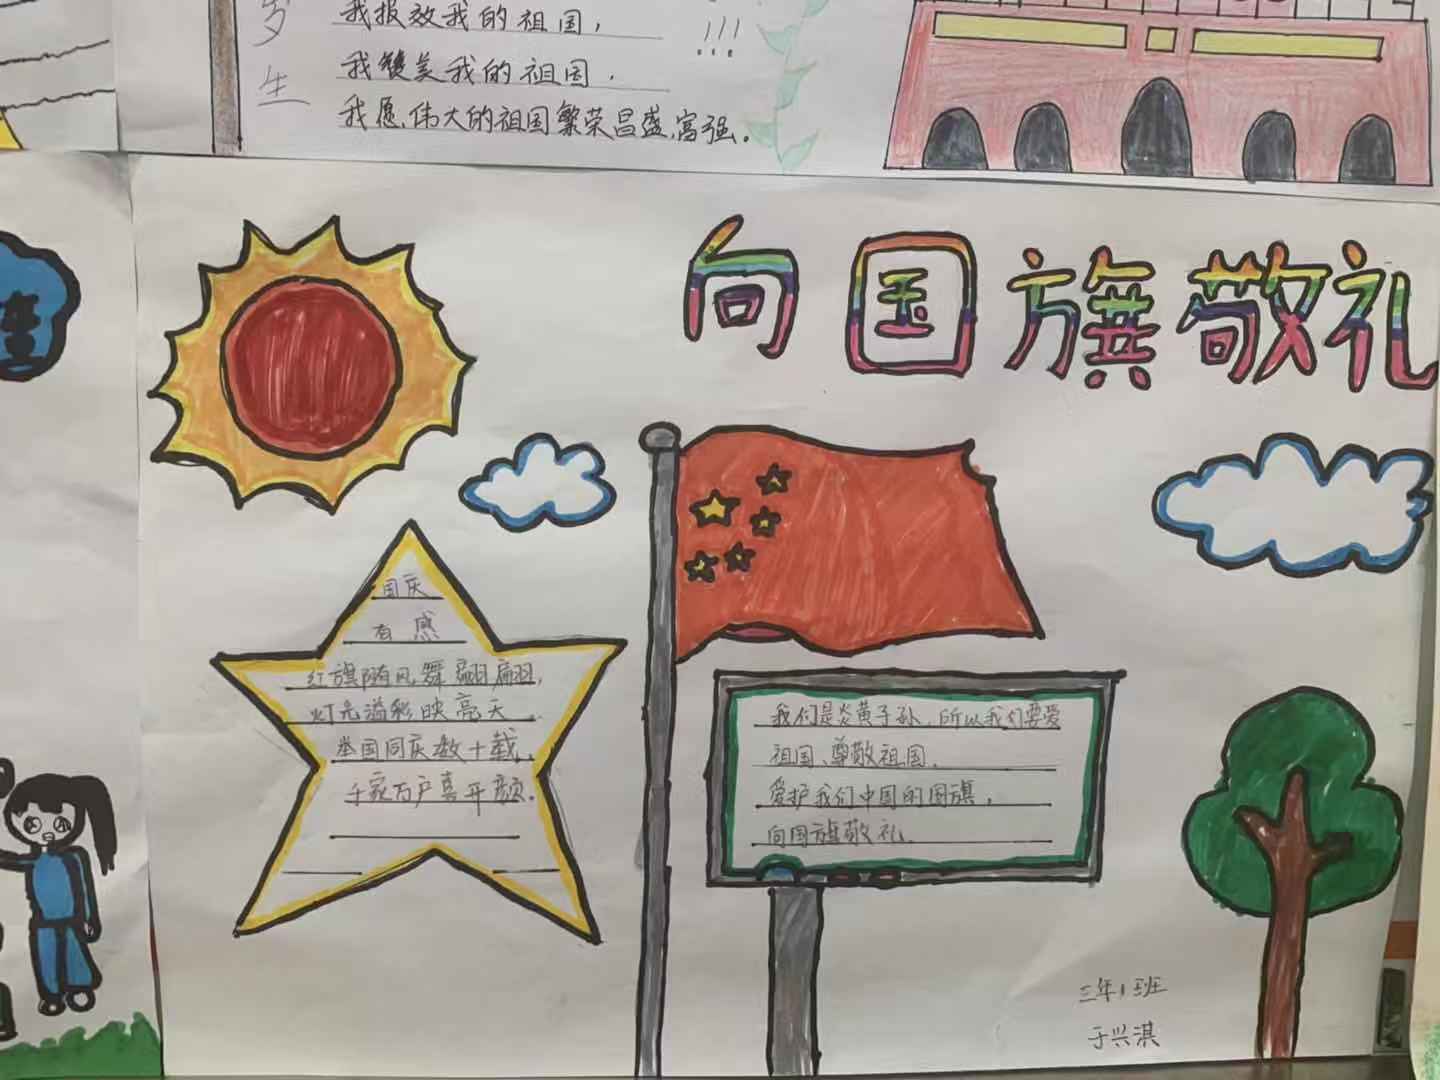 岁
生
我报效我的祖国，
我赞美我的祖国，
我愿伟大的祖国繁荣昌盛，富强。
向国旗敬礼
国庆
有感
红旗随风舞翩翩，
灯光溢彩映亮天
举国同庆数十载，
千家万户喜开颜。
我们是炎黄子孙，所以我们要爱
祖国、尊敬祖国，
爱护我们中国的国旗，
向国旗敬礼。
三年1班
于兴淇